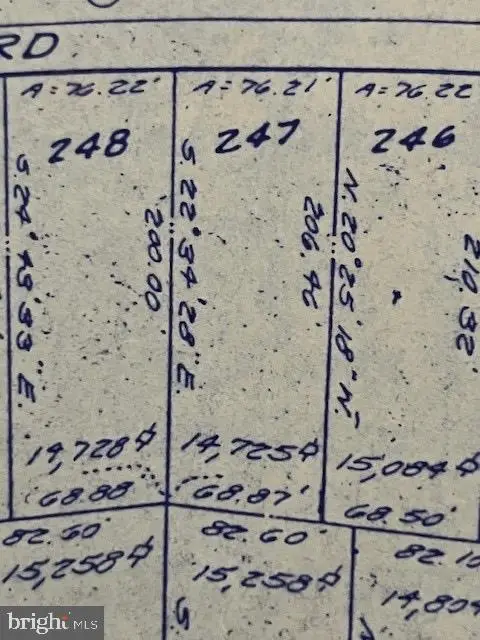 RD.
A = 76.22'
A = 76.21'
A = 76.22
248
247
246
S 24° 43' 33" E.
200.00
S 22° 34' 28" E.
206.46
N. 20° 25' 18" W.
210.32'
14,728 ⌗
14,725 ⌗
15,084 ⌗
68.88
68.87'
68.50'
82.60'
82.60'
82.10
15,258 ⌗
15,258 ⌗
14,804
S.
bright MLS